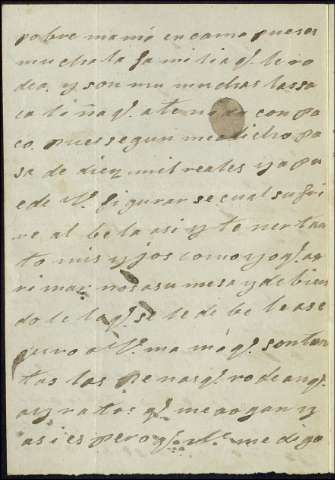 pobre mamá en cama pues es
mucha la familia q.e le ro
dea, y son mu muchas las sa
ca li ñas q.e a tenido con po
co, pues segun me a dicho pa
sa de diez mil reales y a pu
ede V. figurar se cual sufri
re al be la asi y te ner tan
to mis y jos como yo q.e a
ri mar nos a su mesa y de bien
do le lo q.e se le de be le ase
guro a V. ma má q.e son tan
tas las penas q.e ro de an q.e
ay ratos q.e me aogan y
asi es pero q.e V. me diga